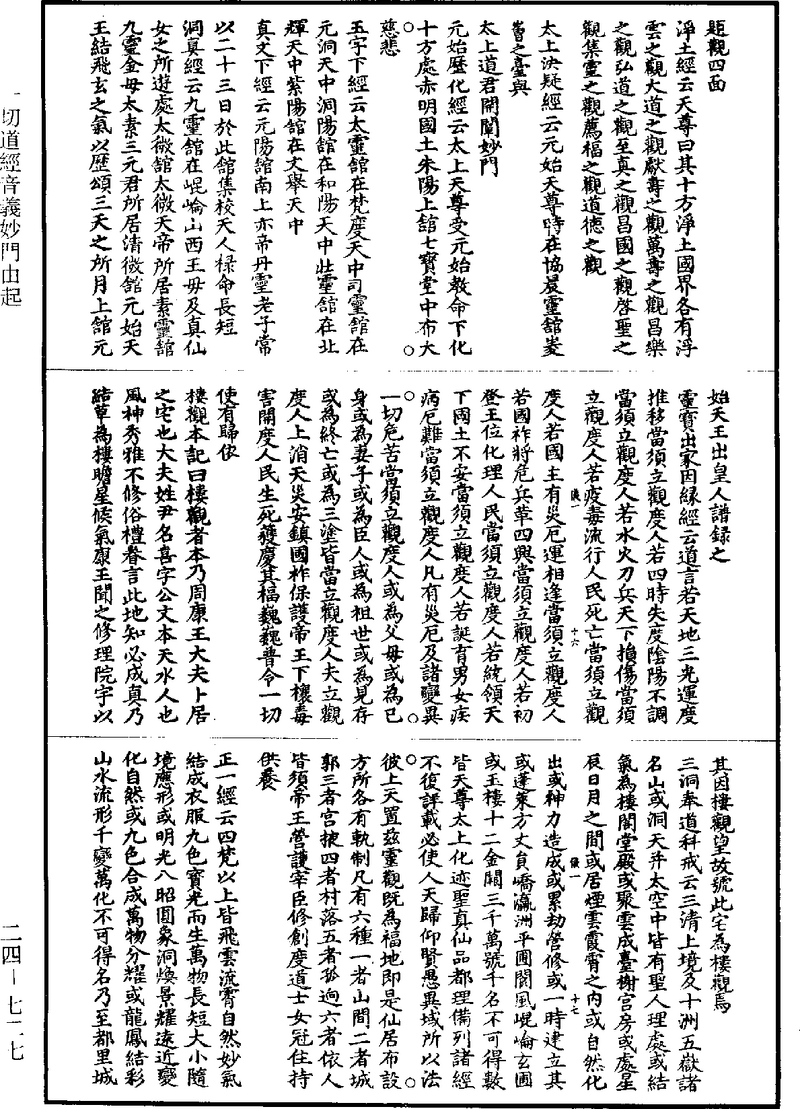 題觀四面
淨土經云天尊曰其十方淨土國界各有浮
雲之觀大道之觀獻壽之觀萬壽之觀昌樂
之觀弘道之觀至真之觀昌國之觀啓聖之
觀集靈之觀薦福之觀道德之觀
太上決疑經云元始天尊時在協晨靈舘
𡺸之臺與
太上道君開闡妙門
元始歷化經云太上天尊受元始教命下化
十方處赤明國土朱陽上舘七寶堂中布大
慈悲
玉字下經云太靈舘在梵度天中司靈舘在
元洞天中洞陽舘在和陽天中壯靈舘在北
輝天中紫陽舘在文舉天中
真文下經云元陽舘南上亦帝丹靈老子常
以二十三日於此舘集校天人祿命長短
洞真經云九靈舘在崐崘山西王母及真仙
女之所遊處太微舘太微天帝所居素靈舘
九靈金母太素三元君所居清微舘元始天
王結飛玄之氣以歷頌三天之所月上舘元
始天王出皇人譜錄之
靈寶出家因緣經云道言若天地三光運度
推移當須立觀度人若四時失度陰陽不調
當須立觀度人若水火刀兵天下損傷當須
立觀度人若疫毒流行人民死亡當須立觀
度人若國主有災厄運相逢當須立觀度人
若國祚將危兵革四興當須立觀度人若初
登王位化理人民當須立觀度人若統領天
下國土不安當須立觀度人若誕育男女疾
病厄難當須立觀度人凡有災厄及諸變異
一切危苦當須立觀度人或為父母或為己
身或為妻子或為臣人或為祖世或為見存
或為終亡或為三塗皆當立觀度人夫立觀
度人上消天災安鎮國祚保護帝王下禳毒
害開度人民生死獲慶其福巍巍普令一切
使有歸依
樓觀本記曰樓觀者本乃周康王大夫卜居
之宅也大夫姓尹名喜字公文本天水人也
風神秀雅不修俗禮眷言此地知必成真乃
結草為樓瞻星候氣康王聞之修理院宇以
其因樓觀望故號此宅為樓觀焉
三洞奉道科戒云三清上境及十洲五嶽諸
名山或洞天并太空中皆有聖人理處或結
氣為樓閣堂殿或聚雲成臺榭宮房或處星
辰日月之間或居煙雲霞霄之內或自然化
出或神力造成或累劫營修或一時建立其
或蓬萊方丈員嶠瀛洲平圃閬風崐崘玄圃
或玉樓十二金闕三千萬號千名不可得數
皆天尊太上化迹聖真仙品都理備列諸經
不復詳載必使人天歸仰賢愚異域所以法
彼上天置茲靈觀既為福地即是仙居布設
方所各有軌制凡有六種一者山間二者城
郭三者宮掖四者村落五者孤迥六者依人
皆須帝王營護宰臣修創度道士女冠住持
供養
正一經云四梵以上皆飛雲流霄自然妙氣
結成衣服九色寶光而生萬物長短大小隨
境應形或明光八照圓象洞煥景耀遠近變
化自然或九色合成萬物分耀或龍鳳結彩
山水流形千變萬化不可得名乃至都里城
儀一
十六
儀一
十七
一切道經音義妙門由起
二四-七二七